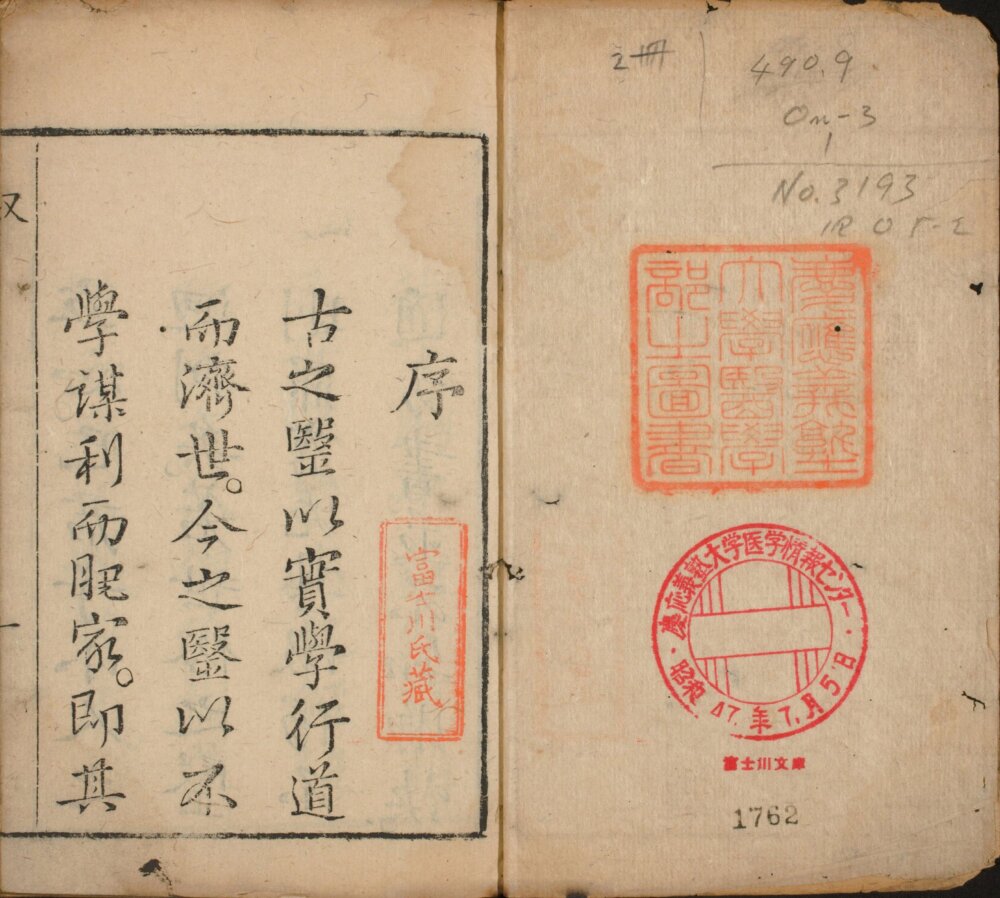 2冊
490.9
On-3
1
No.3193
慶應義塾
大學醫學
部之圖書
慶応義塾大学医学情報センター
昭和47.年7.月5.日
富士川文庫
1762
序
富士川氏藏
古之醫以實學行道
而濟世。今之醫以不
學謀利而肥家。即其
又
一